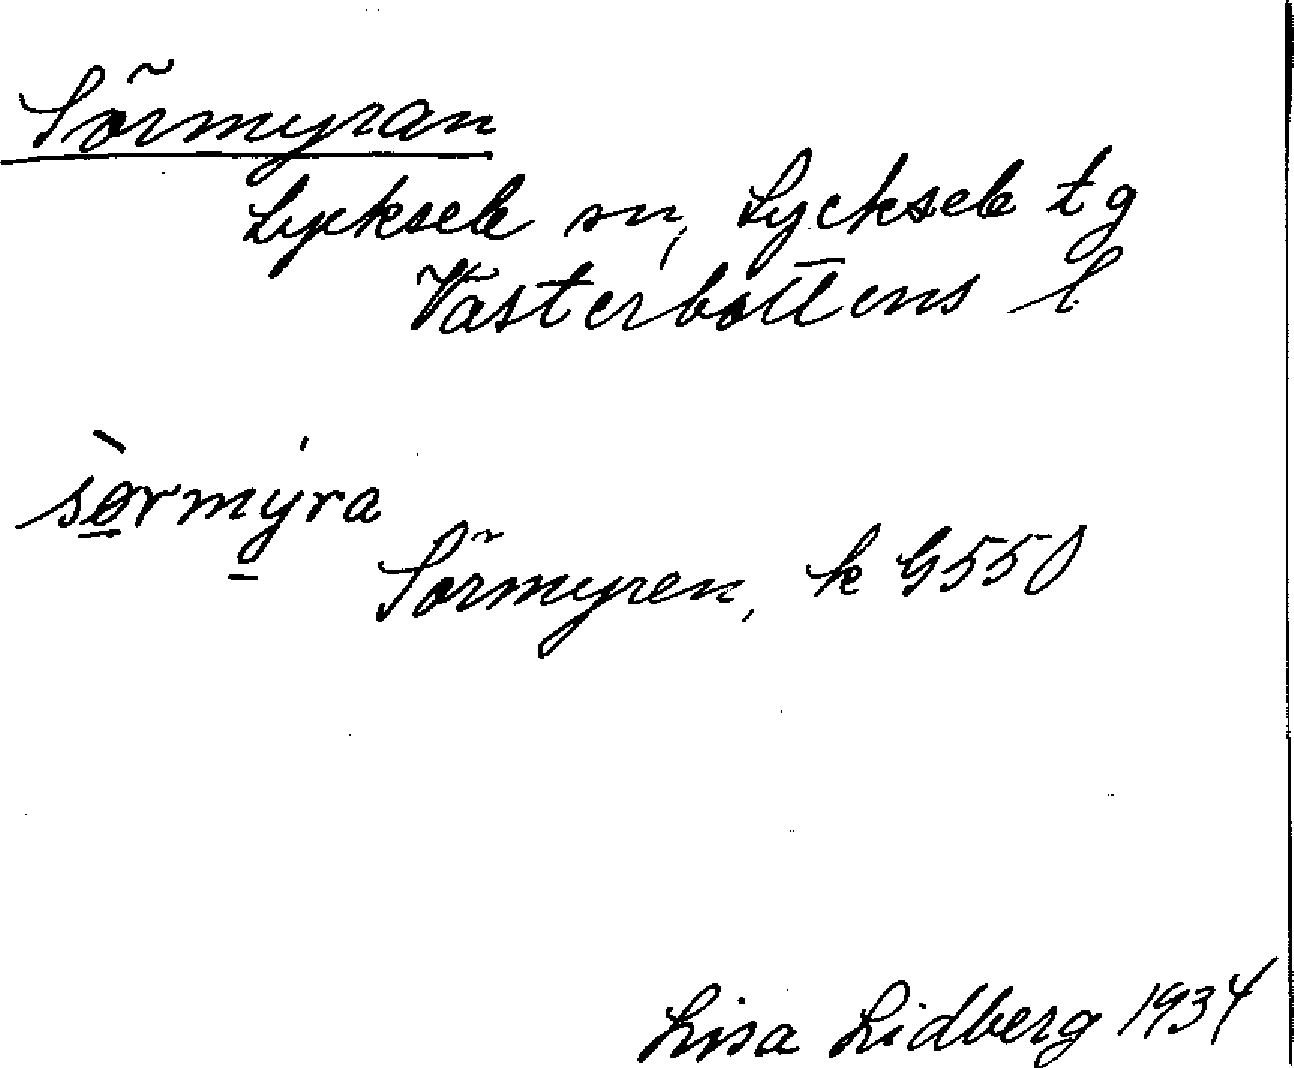 Sörmyran
Lycksele sn, Lycksele tg
Västerbottens l
sørmyra
Sörmyren, k G 55 O
Lisa Lidberg 1934